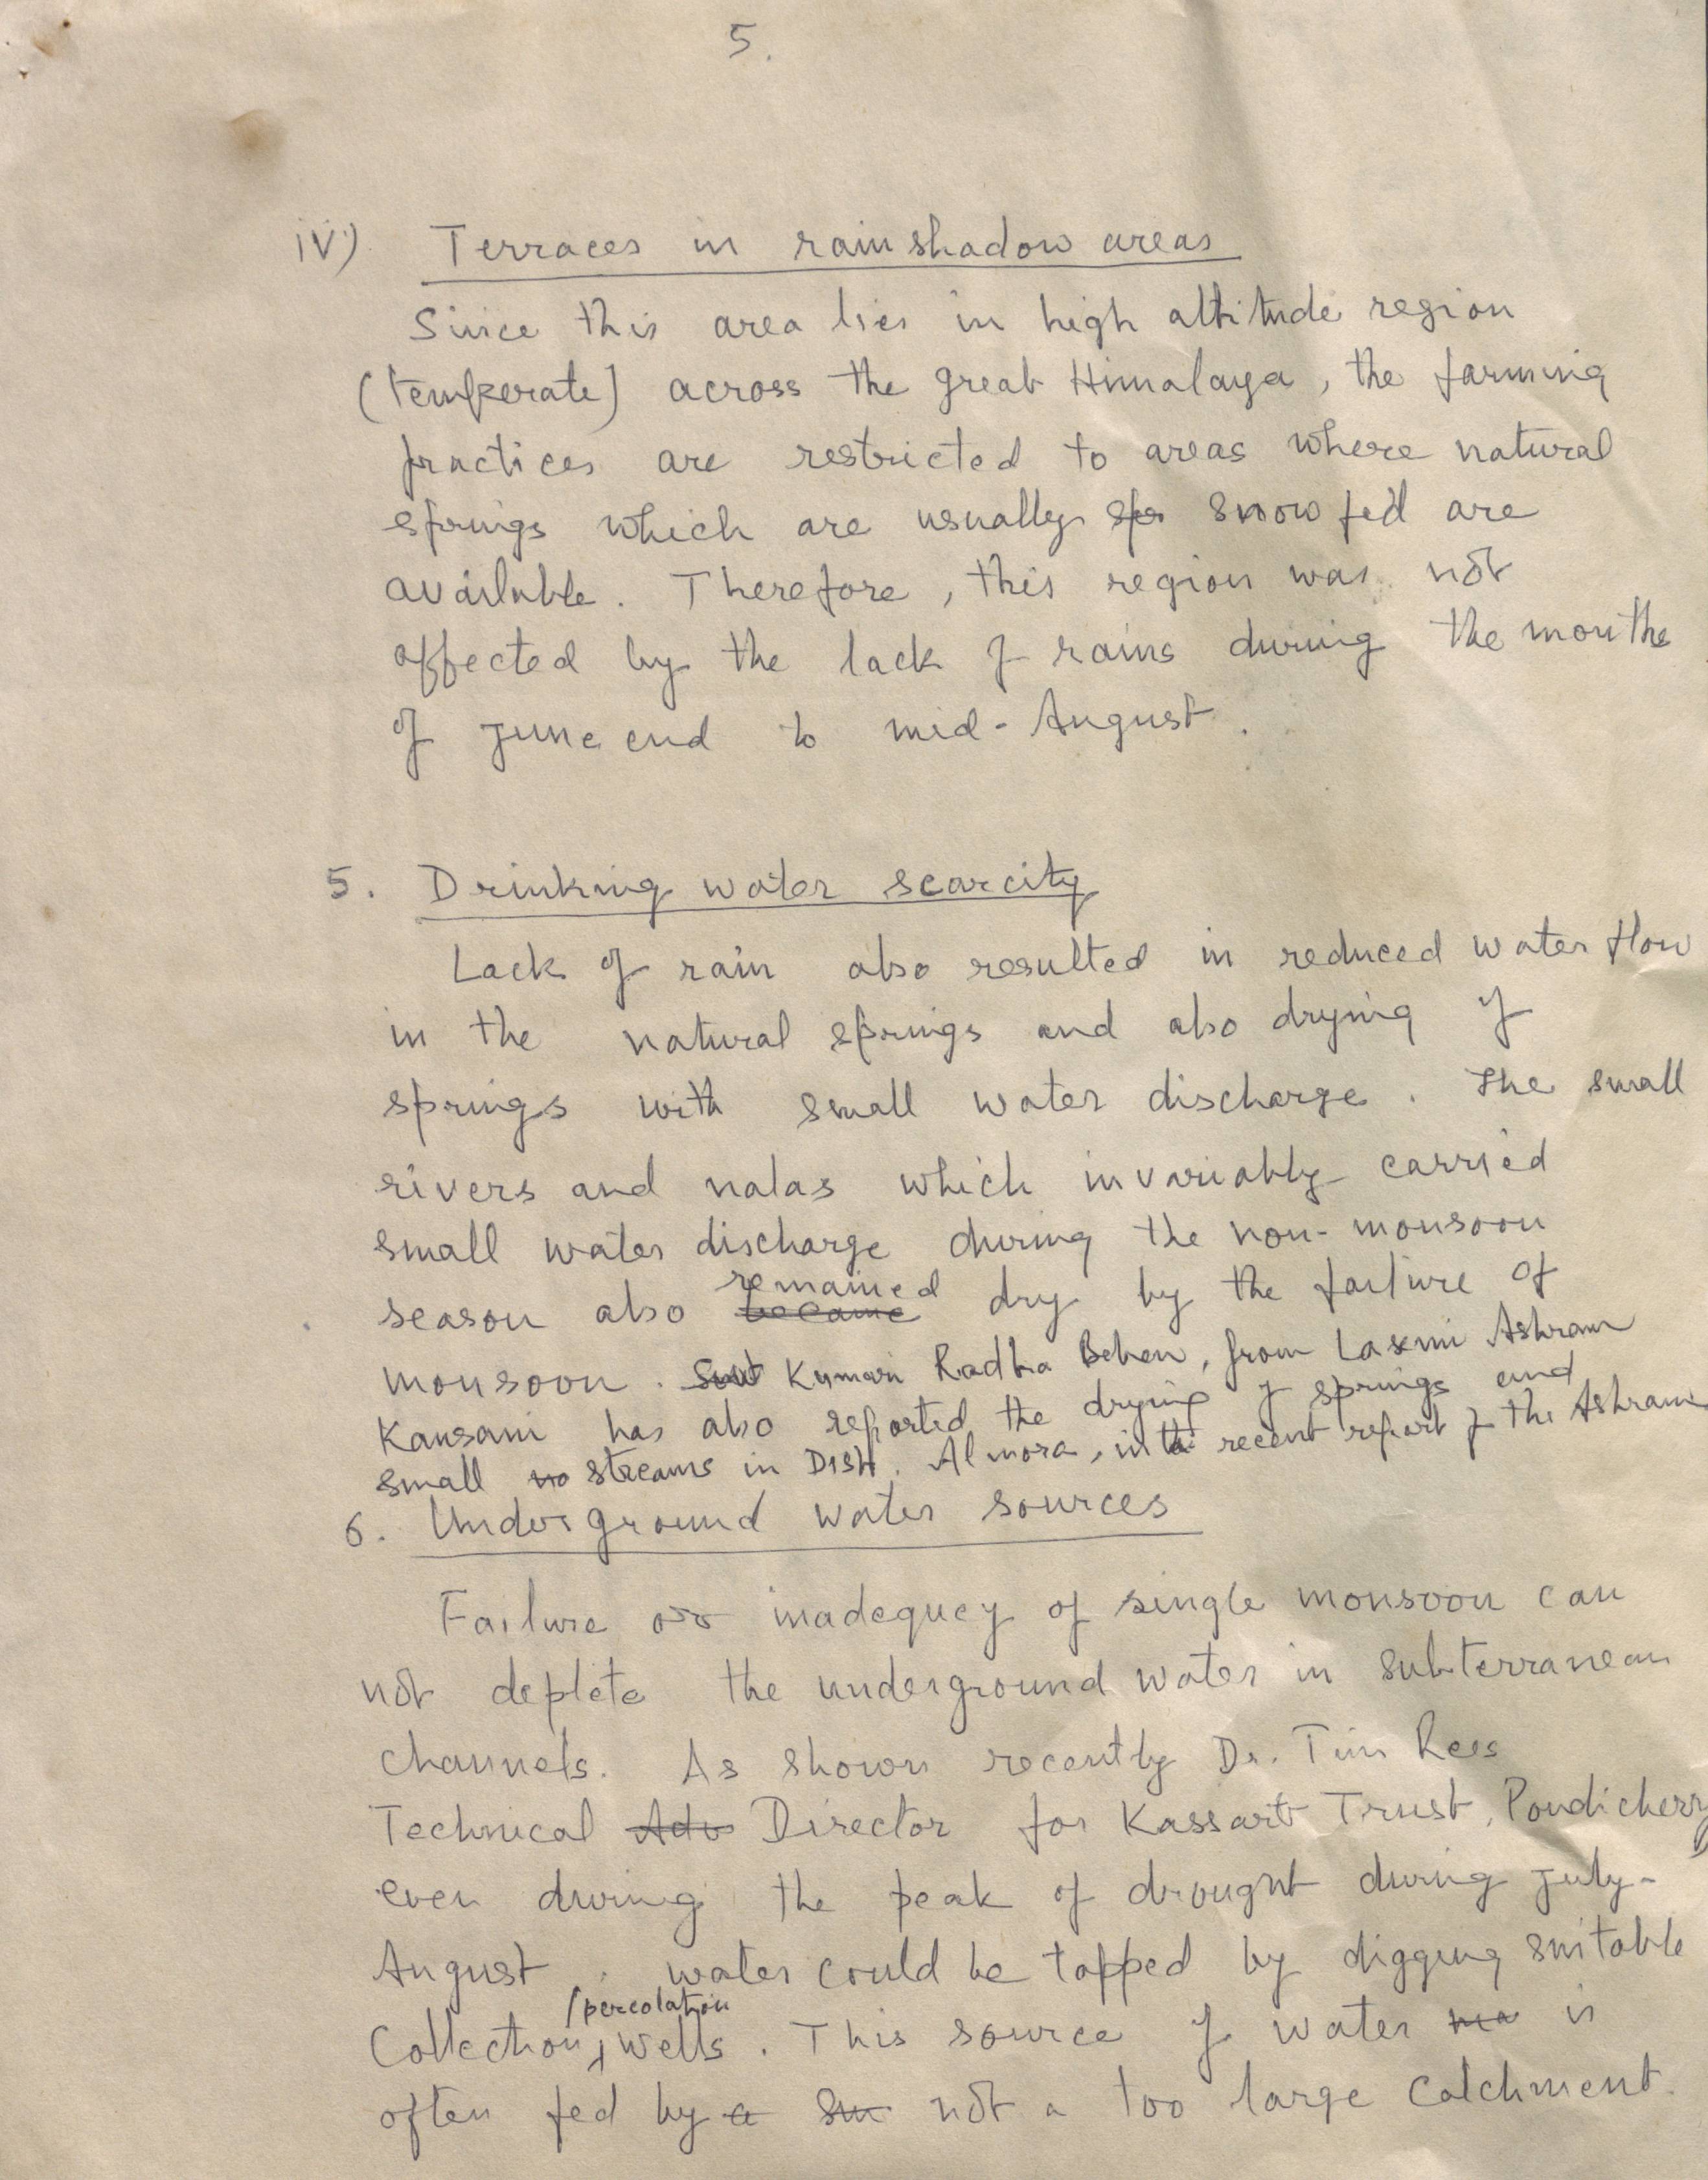 5.
iv) Terraces in rainshadow areas
Since this area lies in high altitude region
(temperate) across the great Himalaya, the farming
practices are restricted to areas where natural
springs which are usually sp snow fed are
available. Therefore, this region was not
affected by the lack of rains during the months
of June end to mid-August.
5. Drinking water scarcity
Lack of rain also resulted in reduced water flow
in the natural springs and also drying of
springs with small water discharge. The small
rivers and nalas which invariably carried
small water discharge during the non-monsoon
remained
season also became dry by the failure of
monsoon. Kumari Radha Behen, from Laxmi Ashram
Kausani has also reported the drying of springs and
small no streams in Distt. Almora, in recent report of the Ashram
6. Underground water sources
Failure or inadequcy of single monsoon can
not deplete the underground water in subterranean
channels. As shown recently Dr. Tim Rees
Technical Adv Director for Kassart Trust, Pondicherry
even during the peak of drought during July-
August. water could be tapped by digging suitable
/percolation
Collection wells. This source of water is
often fed by a sm not a too large catchment.